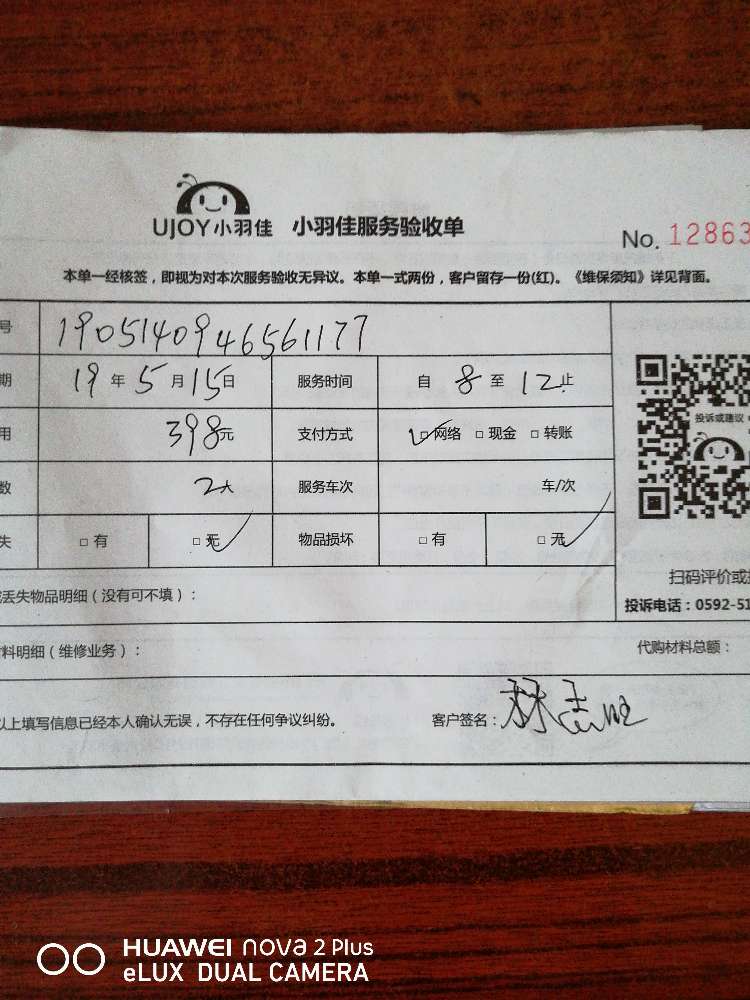 UJOY小羽佳 小羽佳服务验收单
No. 12863
本单一经核签，即视为对本次服务验收无异议。本单一式两份，客户留存一份(红)。《维保须知》详见背面。
号 1905140946561177
期 19年5月15日 服务时间 自8至12止
用 398元 支付方式 □网络 □现金 □转账
投诉或建议
数 2人 服务车次 车/次
失 □有 □无 物品损坏 □有 □无
扫码评价或
丢失物品明细（没有可不填）：
投诉电话：0592-51
料明细（维修业务）： 代购材料总额：
以上填写信息已经本人确认无误，不存在任何争议纠纷。 客户签名：林志旺
HUAWEI nova 2 Plus
eLUX DUAL CAMERA